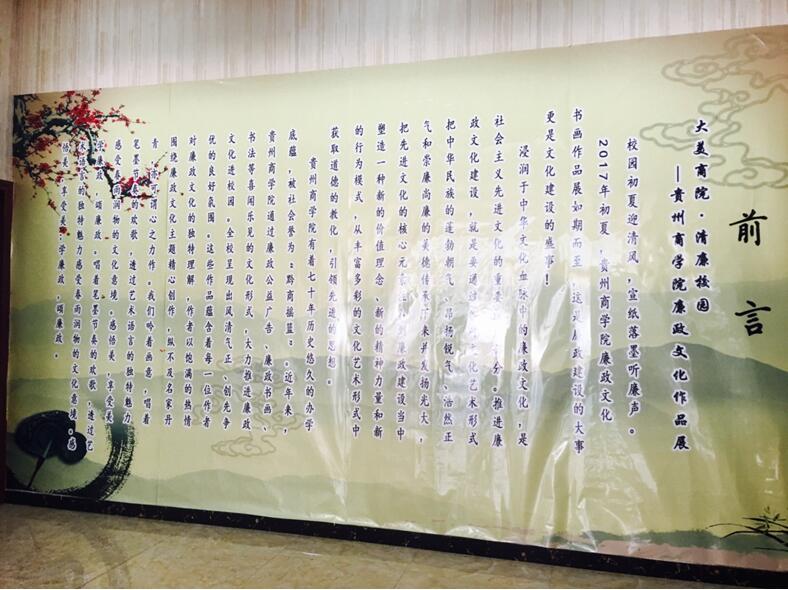 前言
大美商院·清廉校园
——贵州商学院廉政文化作品展
校园初夏迎清风，宣纸落墨听廉声。
2017年初夏，贵州商学院廉政文化
书画作品展如期而至，这是廉政建设的大事
更是文化建设的盛事！
浸润于中华文化血脉中的廉政文化，是
社会主义先进文化的重要 分。推进廉
政文化建设，就是要通过 化艺术形式
把中华民族的蓬勃朝气、昂扬锐气、浩然正
气和崇廉尚廉的美德传承下来并发扬光大，
把先进文化的核心元素 到廉政建设当中
塑造一种新的价值理念、新的精神力量和新
的行为模式，从丰富多彩的文化艺术形式中
获取道德的教化，引领先进的思想。
贵州商学院有着七十年历史悠久的办学
底蕴，被社会誉为“黔商摇篮”。近年来，
贵州商学院通过廉政公益广告、廉政书画、
书法等喜闻乐见的文化形式，大力推进廉政
文化进校园。全校呈现出风清气正、创先争
优的良好氛围。这些作品蕴含着每一位作者
对廉政文化的独特理解，作者以饱满的热情
围绕廉政文化主题精心创作，纵不及名家丹
青， 谓心之力作。我们吟着画意，唱着
笔墨节奏的欢歌，透过艺术语言的独特魅力
感受春雨润物的文化意境。感悟美，享受美
学廉政，颂廉政。唱着笔墨节奏的欢歌，透过艺
术语言的独特魅力感受春雨润物的文化意境。感
悟美，享受美，学廉政，颂廉政。